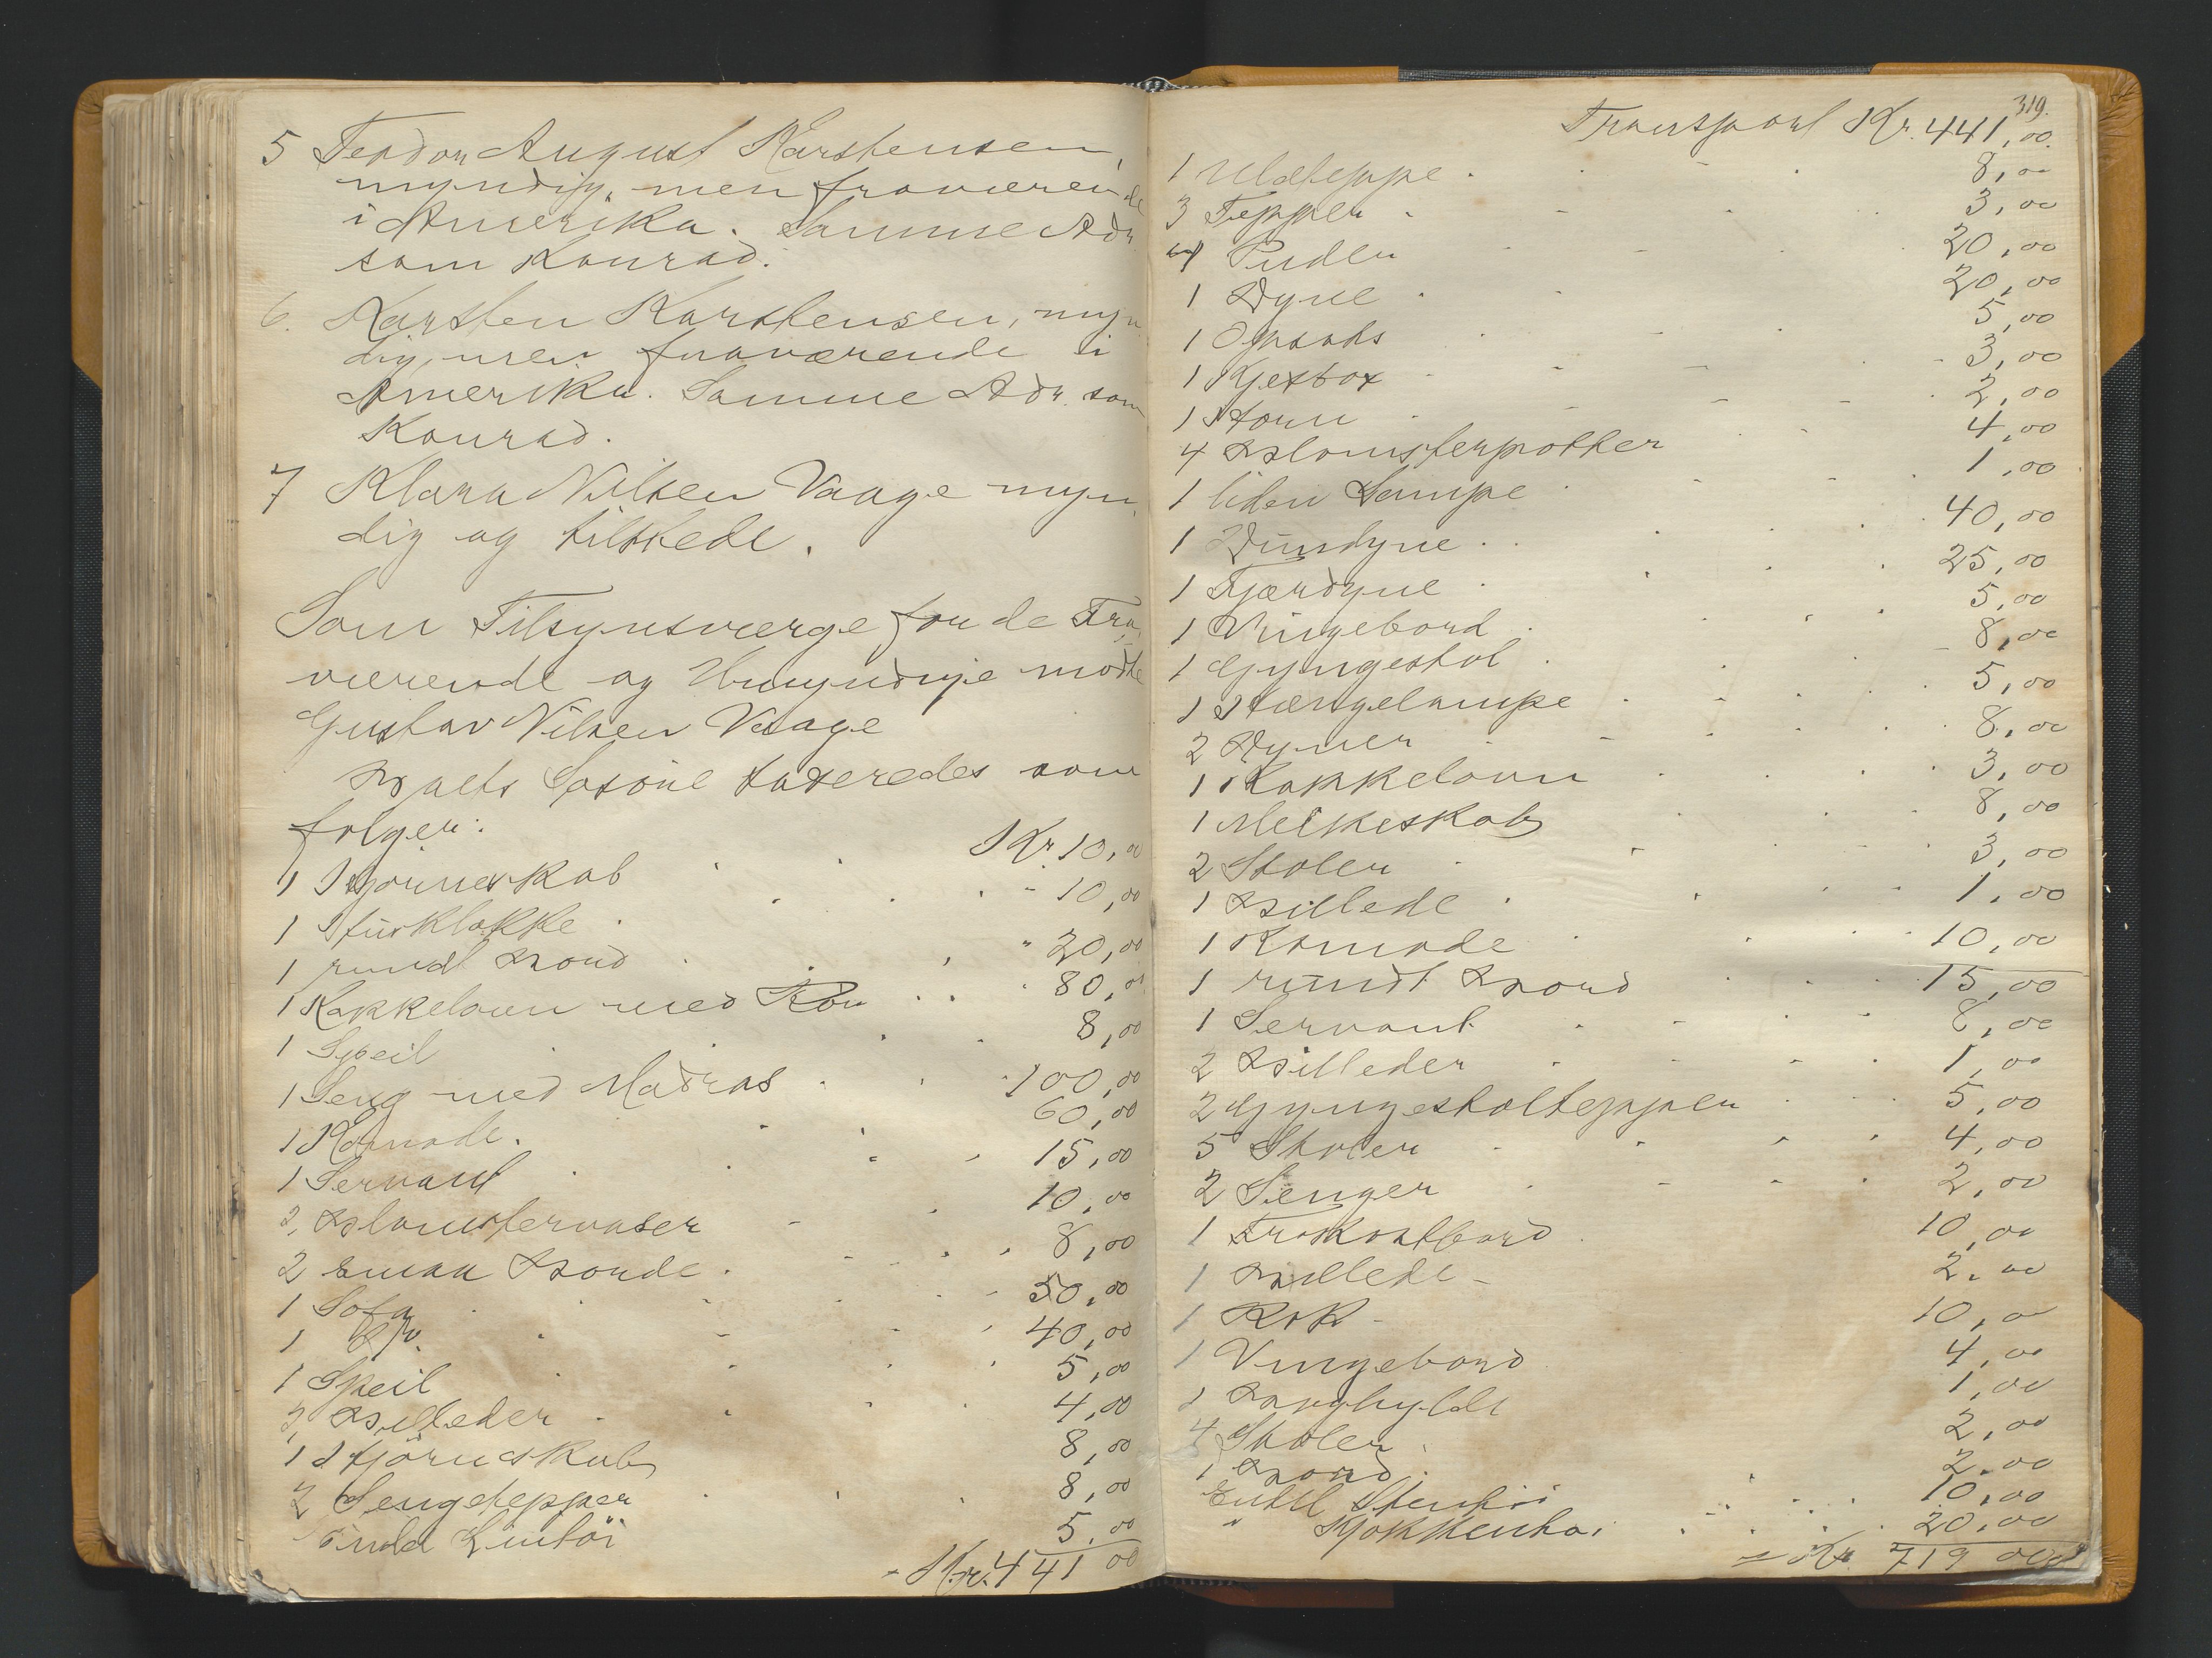 5 Teodor August Karstensen,
myndig, men fraværende
i Amerika. Samme Adr.
som Konrad.
6. Karsten Karstensen, myn
dig, men fraværende i
Amerika. Samme Adr. som
Konrad.
7 Klara Nilsen Vaage myn,
dig og tilstede.
Som Tilsynsværge for de Fra,
værende og Umyndige mødte
Gustav Nilsen Vaage
Boets Løsøre taxeredes som
følger:
1 Hjørneskab Kr. 10,00
1 Stueklokke - 10,00
1 rundt Bord " 20,00
1 Kakkelovn med Rør " 80,00
1 Speil 8,00
1 Seng med Madras 100,00
1 Komode. 60,00
1 Servant 15,00
2 Blomstervaser 10,00
2 smaa Borde. 8,00
1 Sofa 50,00
1 Ur. 40,00
1 Speil 5,00
3 Billeder 4,00
1 Hjørneskab 8,00
2 Sengetepper 8,00
Lintøi 5,00
Kr. 441 00
319.
Transport Kr. 441,00.
1 Uldteppe 8,00
3 Tepper 3,00
4 Puder 20,00
1 Dyne 20,00
1 Opsats 5,00
1 Kjexbox 3,00
1 2,00
4 Blomsterpotter 4,00
1 liden Lampe 1,00
1 Dundyne 40,00
1 Fjærdyne 25,00
1 Vingebord 5,00
1 Gyngestol 8,00
1 Hængelampe 5,00
2 Dyner 8,00
1 Kakkelovn 3,00
1 Melkeskab 8,00
2 Stoler 3,00
1 Billede 1,00
1 Komode 10,00
1 rundt Bord 15,00
1 Servant 8,00
2 Billeder 1,00
2 Gyngestoltepper 5,00
5 Stoler 4,00
2 Senger 2,00
1 Frokostbord 10,00
1 Billede 2,00
1 Rok 10,00
1 Vingebord 4,00
1 1,00
4 Stoler 2,00
1 Bord 2,00
Endel Stentøi 10,00
" Kjøkkentøi 20,00
Kr. 719 00